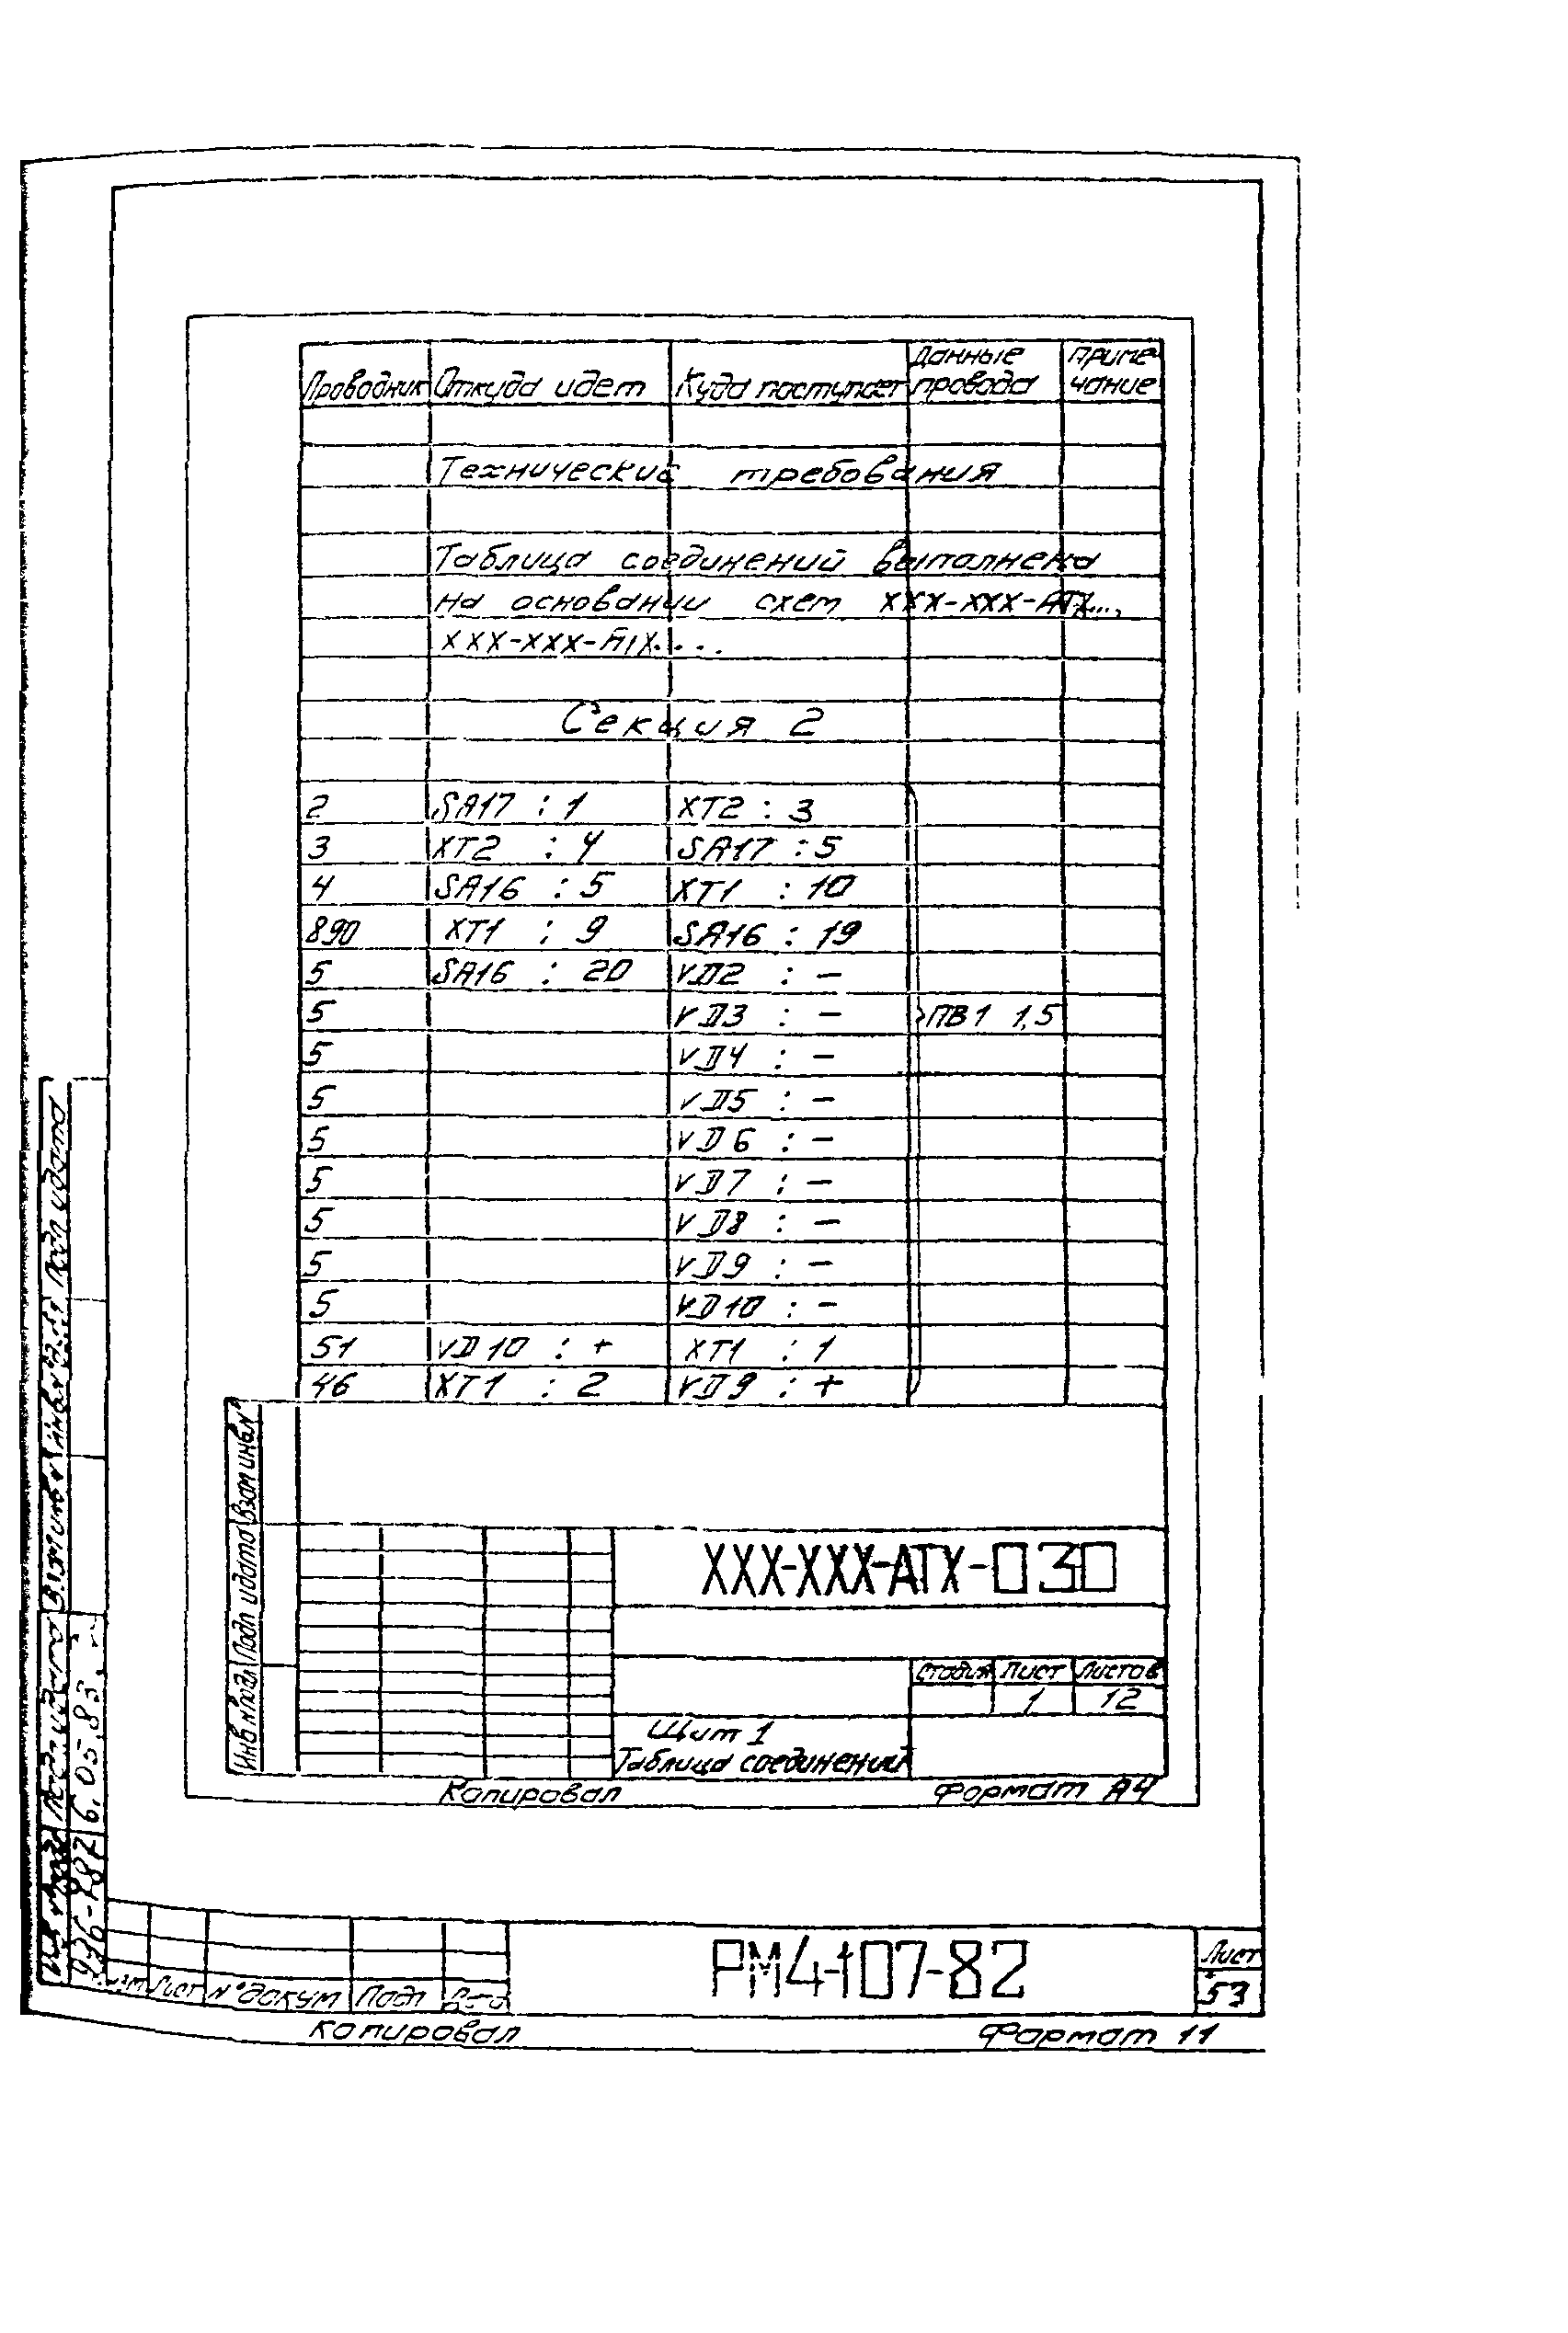 Проводник Откуда идет Куда поступает Данные провода Примечание
Технические требования
Таблица соединений выполнена
на основании схем XXX-XXX-АТХ...,
XXX-XXX-АТХ....
Секция 2
2 SA17 : 1 XT2 : 3
3 XT2 : 4 SA17 : 5
4 SA16 : 5 XT1 : 10
890 XT1 : 9 SA16 : 19
5 SA16 : 20 VD2 : -
5 VD3 : - ПВ1 1,5
5 VD4 : -
5 VD5 : -
5 VD6 : -
5 VD7 : -
5 VD8 : -
5 VD9 : -
5 VD10 : -
51 VD10 : + XT1 : 1
46 XT1 : 2 VD9 : +
Взам инв №
Подп и дата
Инв № подл
XXX-XXX-АТХ-030
Стадия Лист Листов
1 12
Щит 1
Таблица соединений
Копировал Формат А4
Подп и дата
Взам инв №
Подп и дата
6.05.83
Лист № докум Подп Дата
РМ4-107-82
Лист
53
Копировал Формат 11